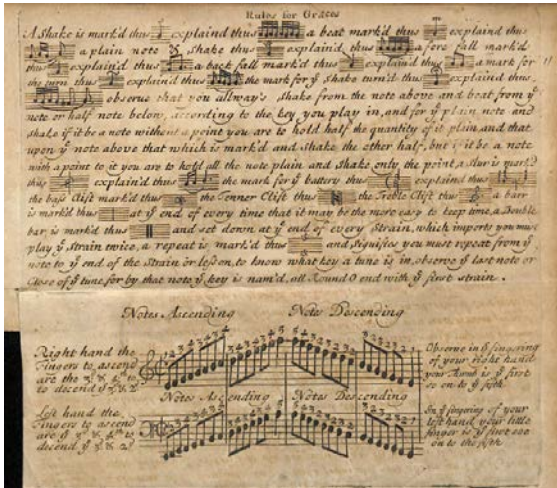 Rules for Graces
A Shake is mark'd thus explaind thus a beat mark'd thus explaind thus
a plain note & shake thus explain'd thus a fore fall mark'd
thus explain'd thus a back fall mark'd thus explain'd thus a mark for
the turn thus explain'd thus the mark for ye shake turn'd thus explain'd thus
observe that you allway's shake from the note above and beat from ye
note or half note below, according to the key you play in, and for ye plain note and
shake if it be a note without a point you are to hold half the quantity of it plain, and that
upon ye note above that which is mark'd and shake the other half, but if it be a note
with a point to it you are to hold all the note plain and shake only the point, a slur is mark'd
thus explain'd thus the mark for ye battery thus explain'd thus
the bass Clift mark'd thus the Tenner Clift thus the Treble Clift thus a barr
is mark'd thus at ye end of every time that it may be the more easy to keep time, a Double
bar is mark'd thus and set down at ye end of every Strain, which imports you must
play ye Strain twice, a repeat is mark'd thus and signifies you must repeat from ye
note to ye end of the Strain or lesson, to know what key a tune is in, observe ye last note or
Close of ye tune for by that note ye key is nam'd, all Round O end with ye first strain.
Notes Ascending Notes Descending
Right hand the
Fingers to ascend
are the 3d, & 4th to
to decend ye 3d & 2d
Observe in ye fingering
of your right hand
your thumb is ye first
so on to ye fifth
Notes Ascending Notes Descending
Left hand the
Fingers to ascend
are ye 3d & 4th to
decend ye 3d & 2d
In ye fingering of your
left hand your little
finger is ye first soe
on to the fifth